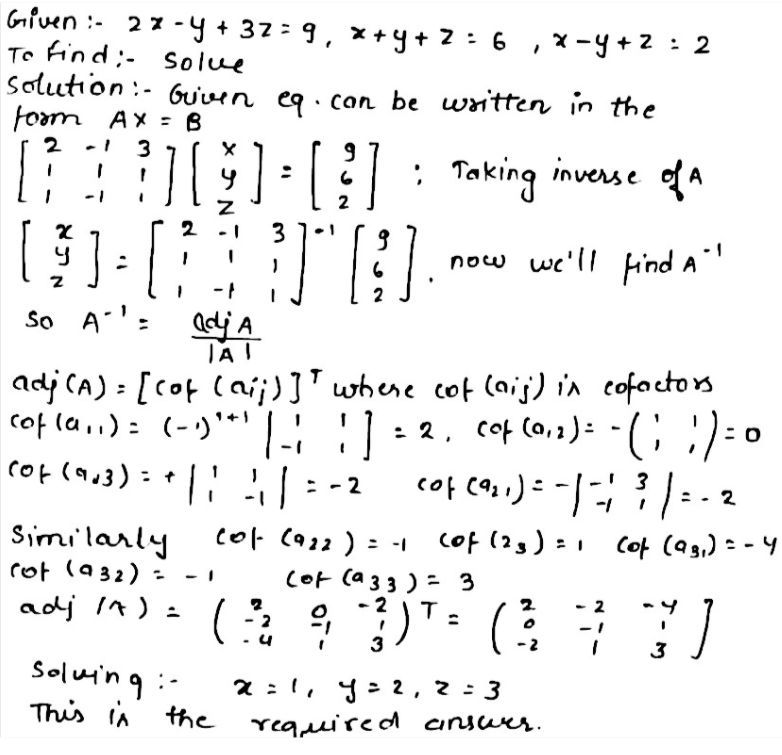 Given :- 2x - y + 3z = 9, x + y + z = 6, x - y + z = 2
To find :- Solve
Solution :- Given eq. can be written in the
form AX = B
[2 -1 3; 1 1 1; 1 -1 1] [x; y; z] = [9; 6; 2] ; Taking inverse of A
[x; y; z] = [2 -1 3; 1 1 1; 1 -1 1]⁻¹ [9; 6; 2]. now we'll find A⁻¹
So A⁻¹ = adj A / |A|
adj (A) = [cof (aij)]ᵀ where cof (aij) is cofactors
cof (a₁₁) = (-1)¹⁺¹ |1 1; -1 1] = 2, cof (a₁₂) = -(1 1; 1 1) = 0
cof (a₁3) = + |1 1; 1 -1| = -2 cof (a₂₁) = -|-1 3; -1 1| = -2
Similarly cof (a22) = -1 cof (23) = 1 cof (a3₁) = -4
cof (a32) = -1 cof (a33) = 3
adj (A) = (2 0 -2; -2 -1 1; -4 1 3)ᵀ = (2 -2 -4; 0 -1 1; -2 1 3]
Solving :- x = 1, y = 2, z = 3
This is the required answer.